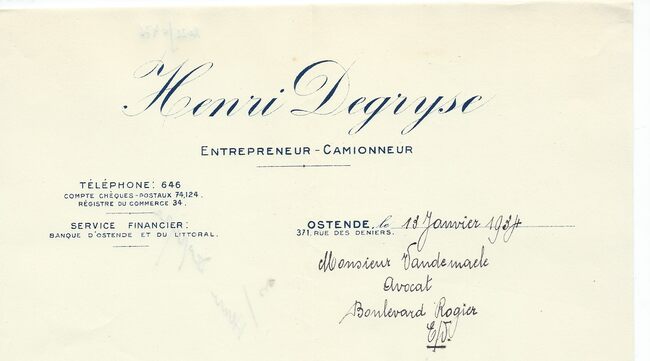 Henri Degryse
ENTREPRENEUR-CAMIONNEUR
TÉLÉPHONE: 646
COMPTE CHÈQUES-POSTAUX 74,124.
RÉGISTRE DU COMMERCE 34.
SERVICE FINANCIER:
BANQUE D'OSTENDE ET DU LITTORAL.
OSTENDE, le 18 Janvier 1934
371, RUE DES DENIERS.
Monsieur Vandemaele
Avocat
Boulevard Rogier
E/V.